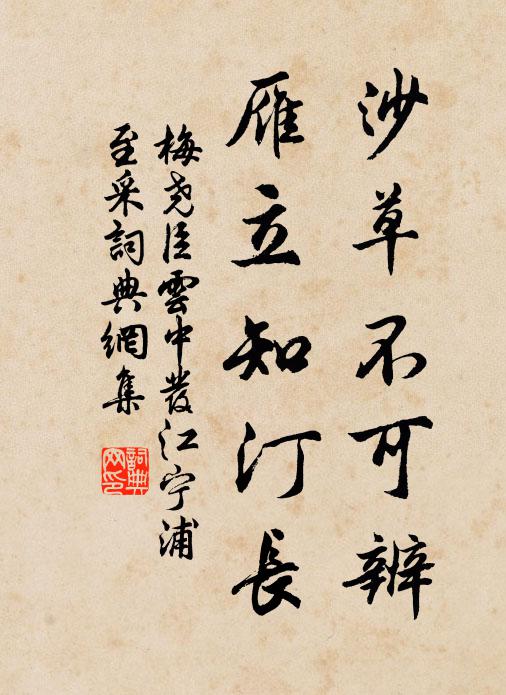 沙草不可辨
雁立知汀長
梅堯臣雲中發江寧浦
至采詞典網集
詞典
网印